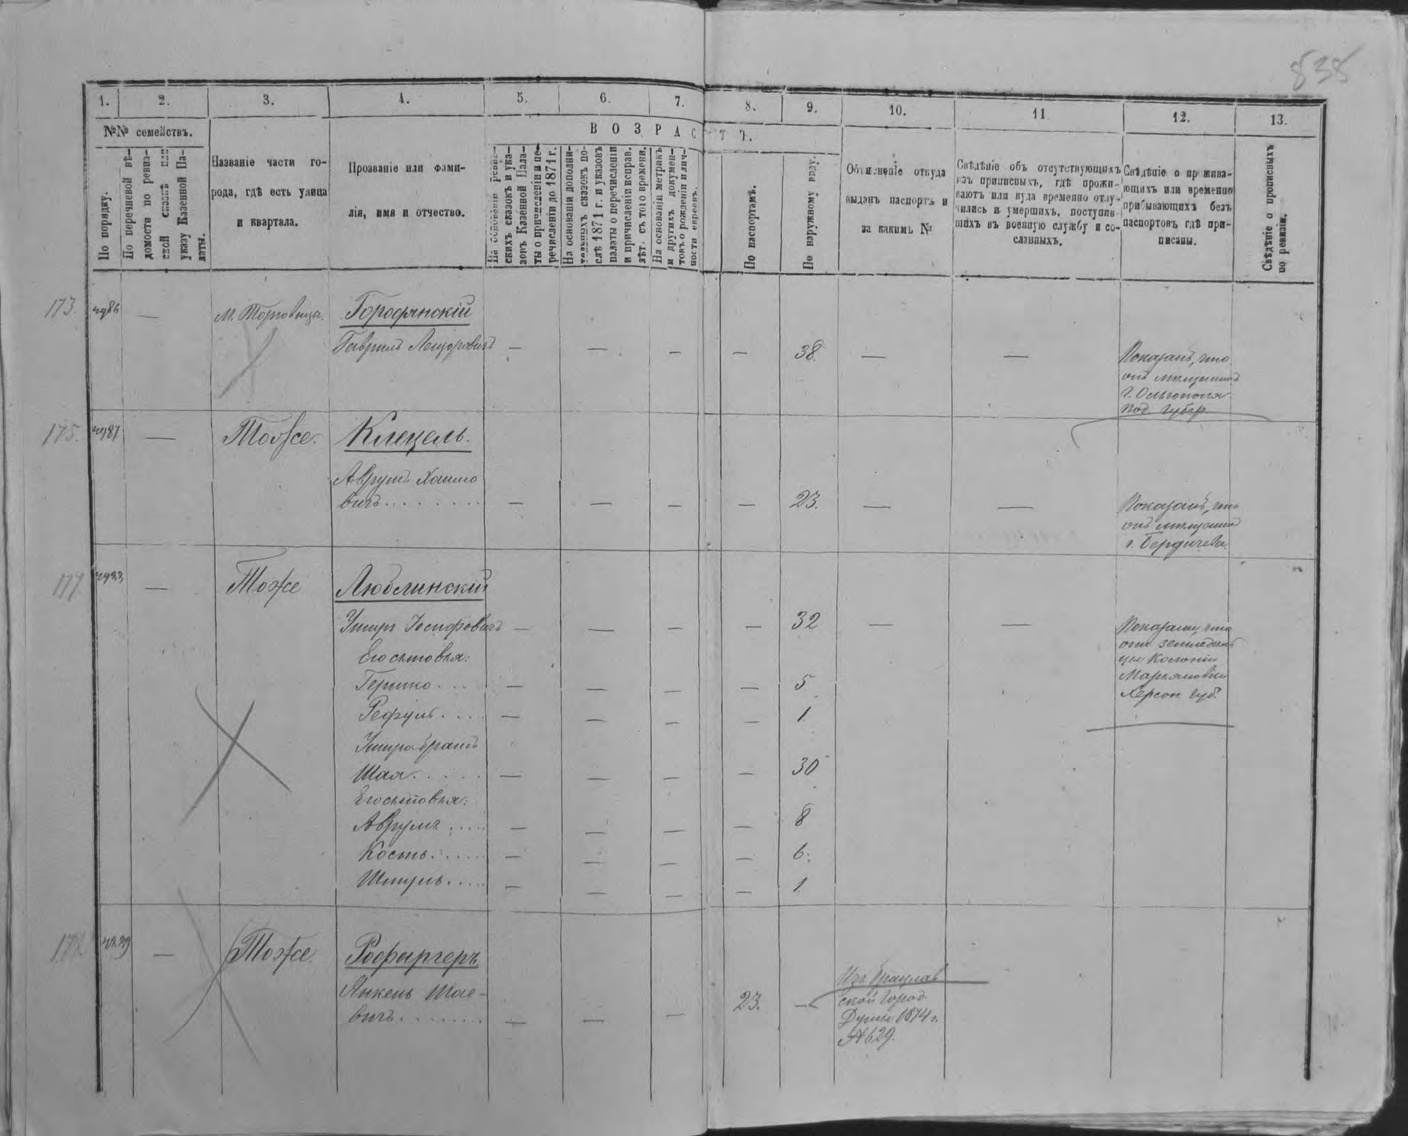 838
1. 2. 3. 4. 5. 6. 7. 8. 9. 10. 11 12. 13.
№№ семействъ.
ВОЗРАСТЪ.
По порядку.
По перечневой вѣ-
домости по ревиз-
ской сказкѣ или
указу Казенной Па-
латы.
Названіе части го-
рода, гдѣ есть улица
и квартала.
Прозваніе или фами-
лія, имя и отчество.
На основаніи реви-
скихъ сказокъ и ука-
зовъ Казенной Пала-
ты о причисленіи и пе-
речисленіи до 1871 г.
На основаніи дополни-
тельныхъ сказокъ по-
слѣ 1871 г. и указовъ
палаты о перечисленіи
и причисленіи исправ.
лѣт. съ того времени.
На основаніи метрикъ
и другихъ докумен-
товъ о рожденіи и лич-
ности евреевъ.
По паспортамъ.
По наружному виду.
Объясненіе откуда
выданъ паспортъ и
за какимъ №
Свѣдѣніе объ отсутствующихъ
изъ приписныхъ, гдѣ прожи-
ваютъ или куда временно отлу-
чились и умершихъ, поступив-
шихъ въ военную службу и со-
сланныхъ.
Свѣдѣніе о прожива-
ющихъ или временно
прибывающихъ безъ
паспортовъ гдѣ при-
писаны.
Свѣдѣніе о прописныхъ
по ревизіи.
173.
— М. Торговица. Городянскій
Гаврилъ — — — — 38. — — Показалъ, что
онъ мѣщанинъ
г. Ольгополя
Под. губер.
175. — Тоже.
Аврумъ Хаимо
вичъ . . . — — — — 23. — — Показалъ, что
онъ мѣщанинъ
г. Бердичева.
177 — Тоже Люблинскій
— — — — 32 — — Показали, что
они земледѣль
цы Колоніи
Херсон. губ.
Его сыновья:
Гершко . . . — — — — 5
— — — — 1
братъ
Шая. . . . — — — — 30
Его сыновья:
Аврумъ . . . — — — — 8
— — — — 6.
Шмуль. . . . — — — — 1
178 — Тоже.
Янкель Шае-
вичъ. . . . — — — 23. — Изъ Брацлав
ской Город.
Думы 1874 г.
№ 629.